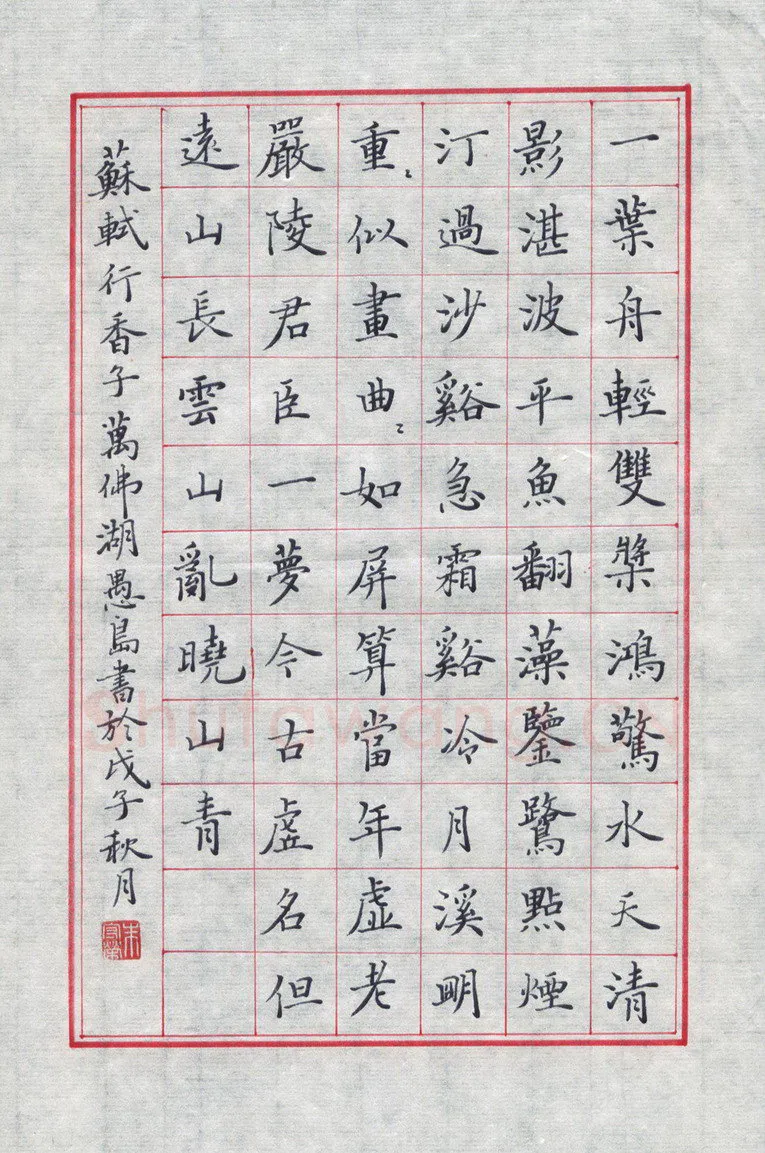 一葉舟輕雙槳鴻驚水天清
影湛波平魚翻藻鑒鷺點煙
汀過沙谿急霜谿冷月溪眀
重〻似畫曲〻如屏算當年虛老
嚴陵君臣一夢今古虛名但
遠山長雲山亂曉山青
蘇軾行香子萬佛湖愚島書於戊子秋月
Shufawang.CN